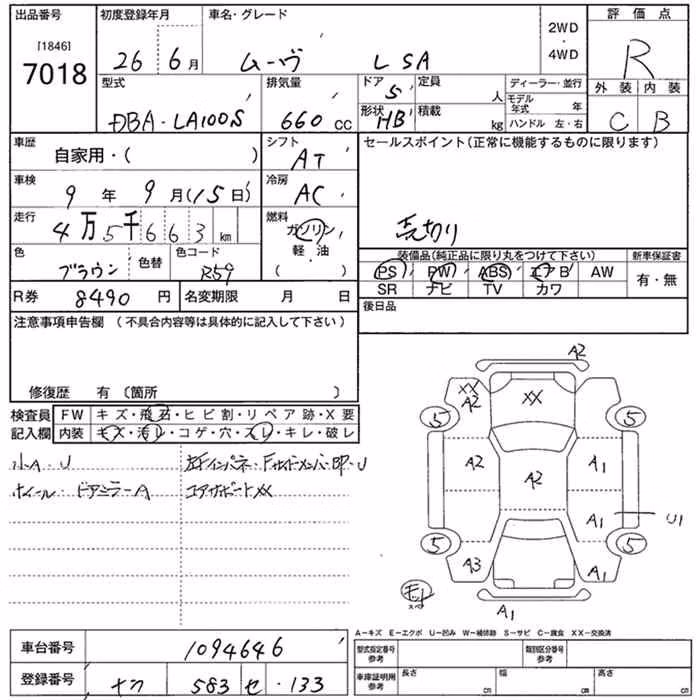 出品番号 [1846] 7018
初度登録年月 26 6月
車名・グレード ムーヴ L SA
2WD ・ 4WD
評価点 R
外装 内装
C B
型式 DBA-LA100S
排気量 660 CC
ドア 5
形状 HB
定員 人
積載 kg
ディーラー・並行
モデル年式 年
ハンドル 左・右
車歴 自家用・( )
シフト AT
セールスポイント(正常に機能するものに限ります)
売切り
車検 9年9月(15日)
冷房 AC
走行 4万5千663km
燃料 ガソリン・軽油 ( )
色 ブラウン 色替
色コード R59
装備品(純正品に限り丸をつけて下さい) 新車保証書
PS PW ABS エアB AW 有・無
SR ナビ TV カワ
R券 8490円 名変期限 月 日
後日品
注意事項申告欄 (不具合内容等は具体的に記入して下さい)
修復歴 有 (箇所 )
検査員 FW キズ・飛石・ヒビ割・リペア跡・X要
記入欄 内装 キズ・汚レ・コゲ・穴・スレ・キレ・破レ
小A・U
ホイール・ドアミラーA
左Fインパネ・Fサイドメンバー部・U
コアサポートXX
A2
XX A2 XX
5 5
A2 A2 A1
A1 U1
5 5
A3 A1
スペ
A1
A-キズ E-エクボ U-凹み W-補修跡 S-サビ C-腐食 XX-交換済
車台番号 1094646
型式指定番号 参考
類別区分番号 参考
登録番号 583 せ ・133
車庫証明用 参考 長さ cm 幅 cm 高さ cm